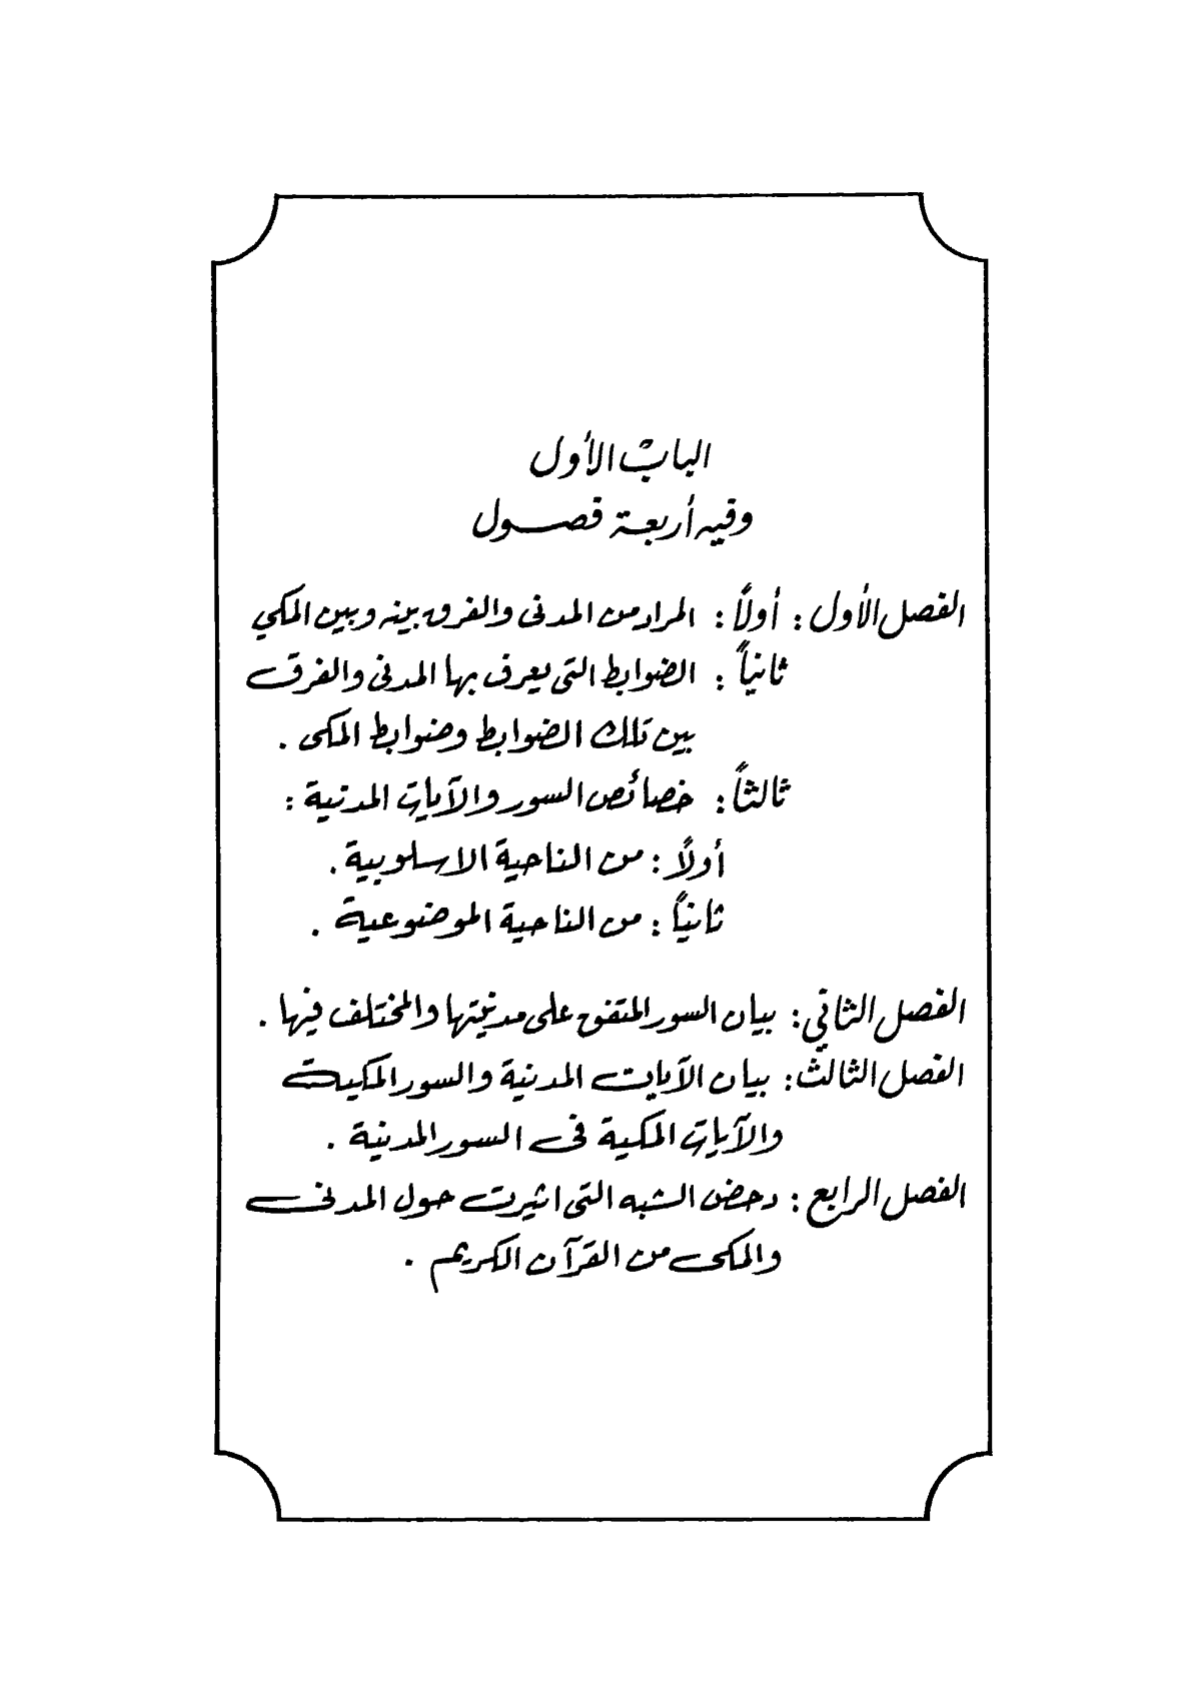 الباب الأول
وفيه أربعة فصول
الفصل الأول : أولاً : المراد من المدنى والفرق بينه وبين المكي
ثانياً : الضوابط التى يعرف بها المدنى والفرق
بين تلك الضوابط وضوابط المكى .
ثالثاً : خصائص السور والآيات المدنية :
أولاً : من الناحية الاسلوبية .
ثانياً : من الناحية الموضوعية .
الفصل الثاني : بيان السور المتفق على مدنيتها والمختلف فيها .
الفصل الثالث : بيان الآيات المدنية والسور المكية
والآيات المكية فى السور المدنية .
الفصل الرابع : دحض الشبه التى اثيرت حول المدنى
والمكى من القرآن الكريم .